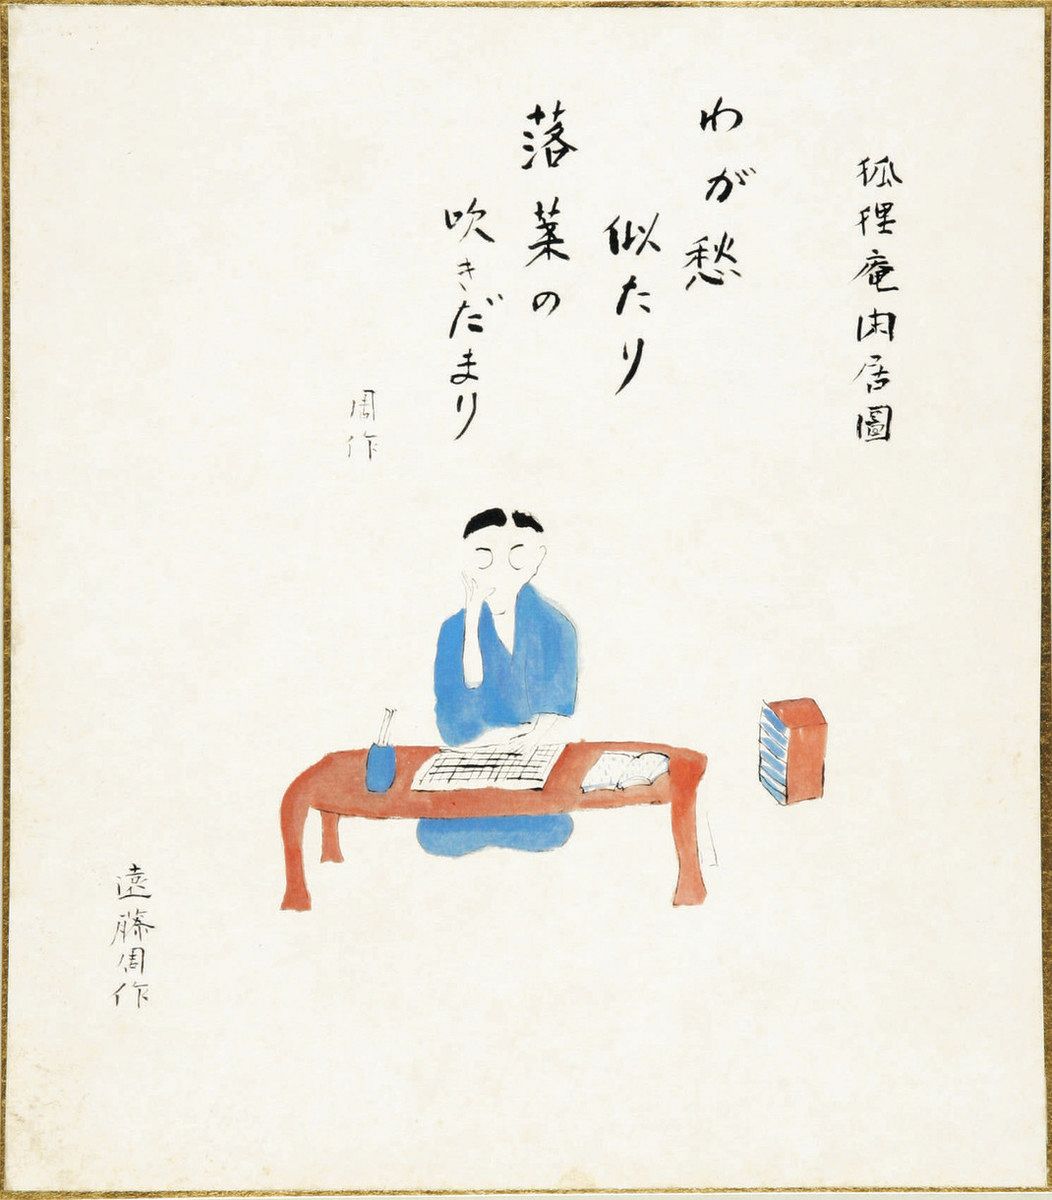 狐狸庵閑居圖
わが愁
似たり
落葉の
吹きだまり
周作
遠藤周作